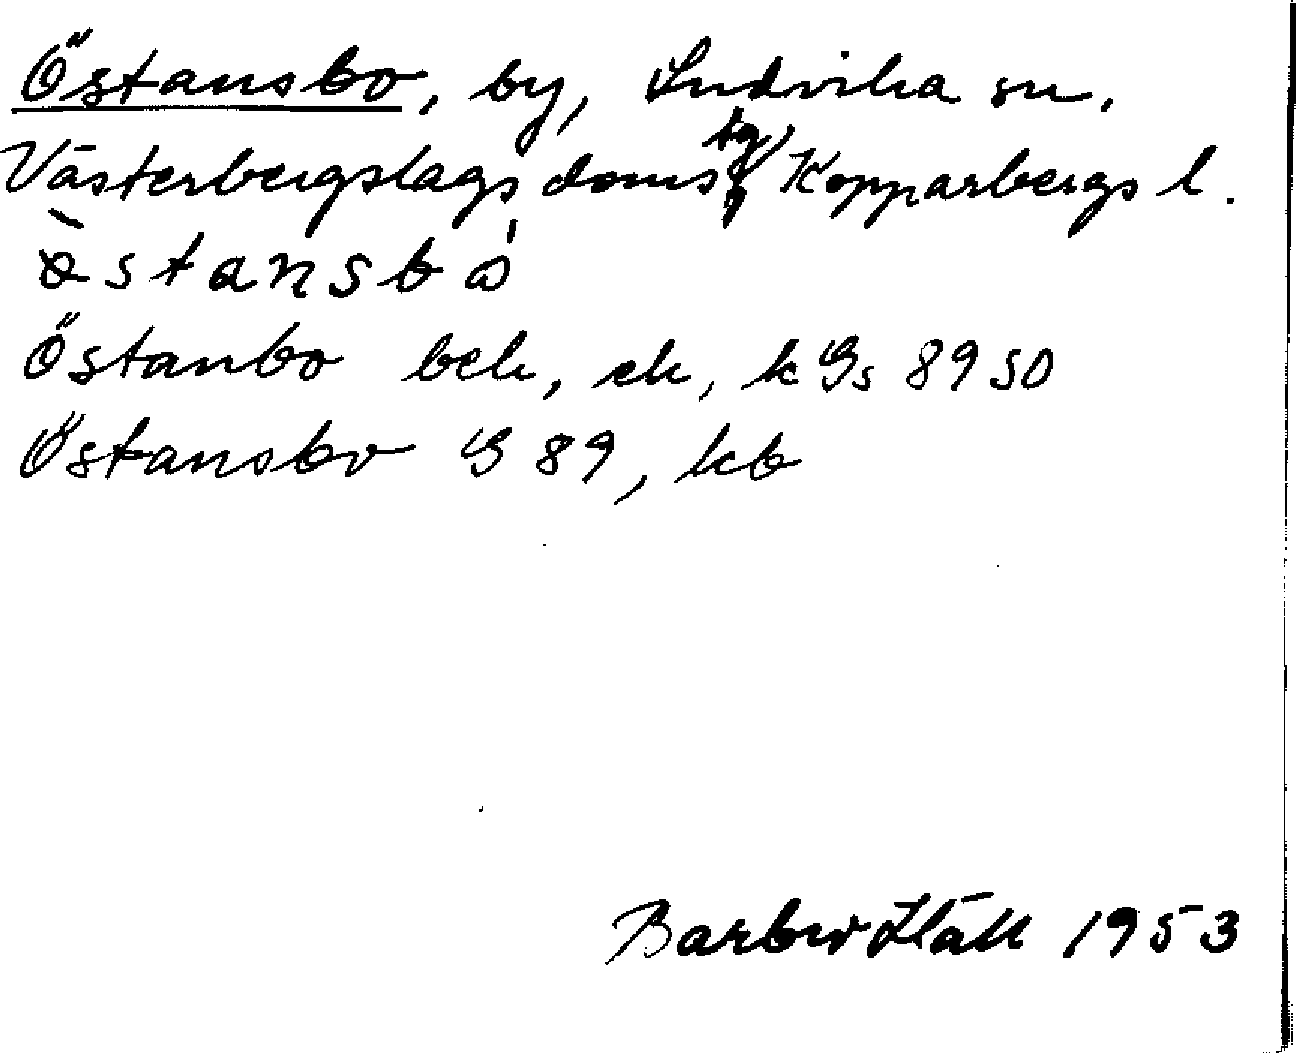 Östansbo, by, Ludvika sn,
Västerbergslags doms tg, Kopparbergs l.
östansbo
Östanbo bek, ek, kGs 8950
Östansbo G 89, kb
1953